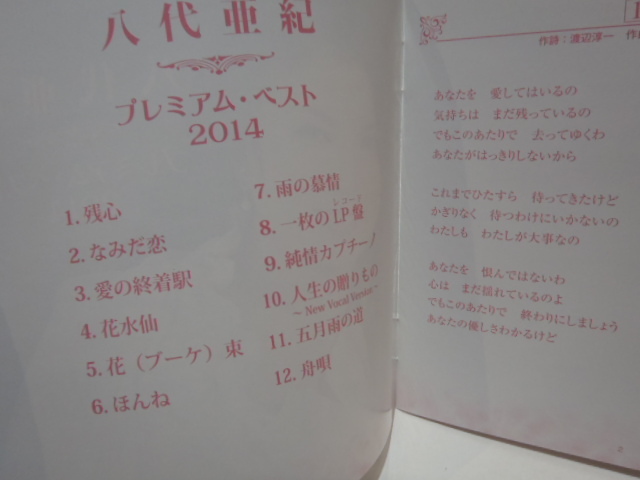 八代亜紀
プレミアム・ベスト
2014
1. 残心
2. なみだ恋
3. 愛の終着駅
4. 花水仙
5. 花（ブーケ）束
6. ほんね
7. 雨の慕情
8. 一枚のLP盤
レコード
9. 純情カプチーノ
10. 人生の贈りもの
～New Vocal Version～
11. 五月雨の道
12. 舟唄
作詩：渡辺淳一
あなたを　愛してはいるの
気持ちは　まだ残っているの
でもこのあたりで　去ってゆくわ
あなたがはっきりしないから
これまでひたすら　待ってきたけど
かぎりなく　待つわけにいかないの
わたしも　わたしが大事なの
あなたを　恨んではないわ
心は　まだ揺れているのよ
でもこのあたりで　終わりにしましょう
あなたの優しさわかるけど
2